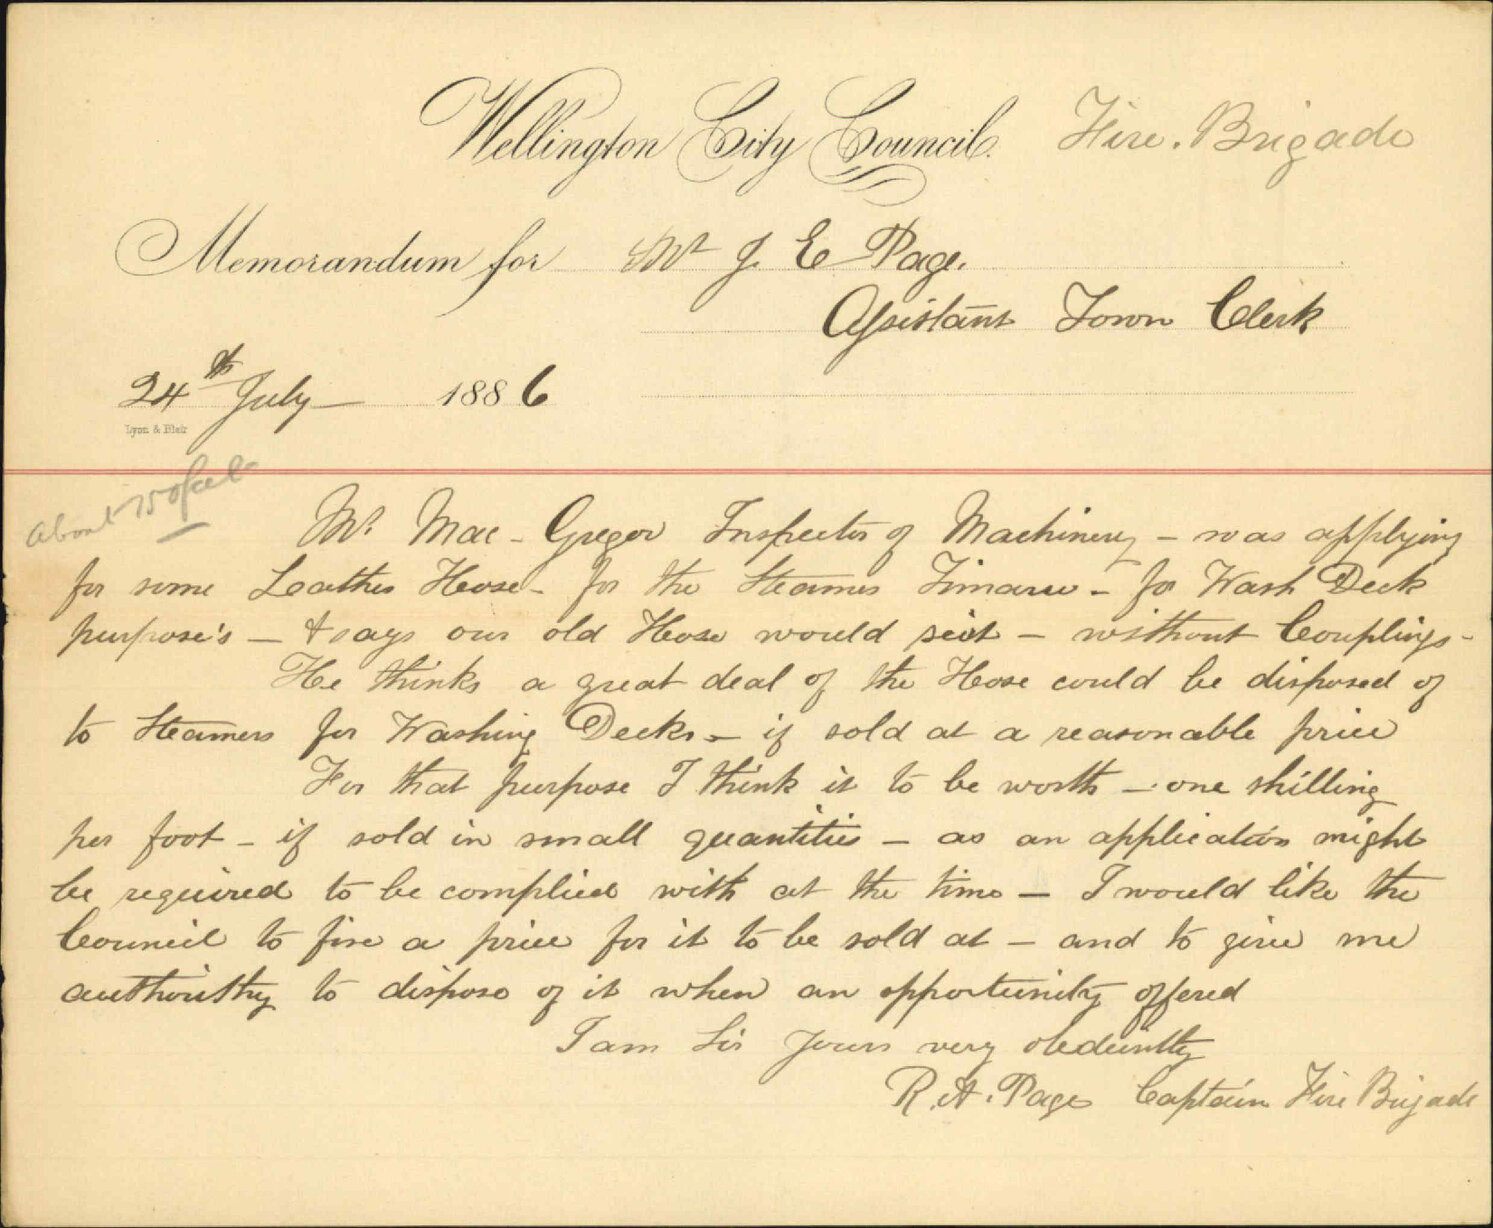 Wellington City Council. Fire. Brigade
Memorandum for Mr J. E Page.
Assistant Town Clerk
24th July 1886
Lyon & Blair
About 150 feet
Mr. Mac-Gregor Inspector of Machinery - was applying
for some Leather Hose - for the Steamer Timaru - for Wash Deck
purpose's - & says our old Hose would suit - without Couplings -
He thinks a great deal of the Hose could be disposed of
to Steamers for Washing Decks - if sold at a reasonable price
For that purpose I think it to be worth - one shilling
per foot - if sold in small quantities - as an application might
be required to be complied with at the time - I would like the
Council to fix a price for it to be sold at - and to give me
authoirithy to dispose of it when an opportunity offered
I am Sir Yours very obediently
R. A. Page Captain Fire Brigade